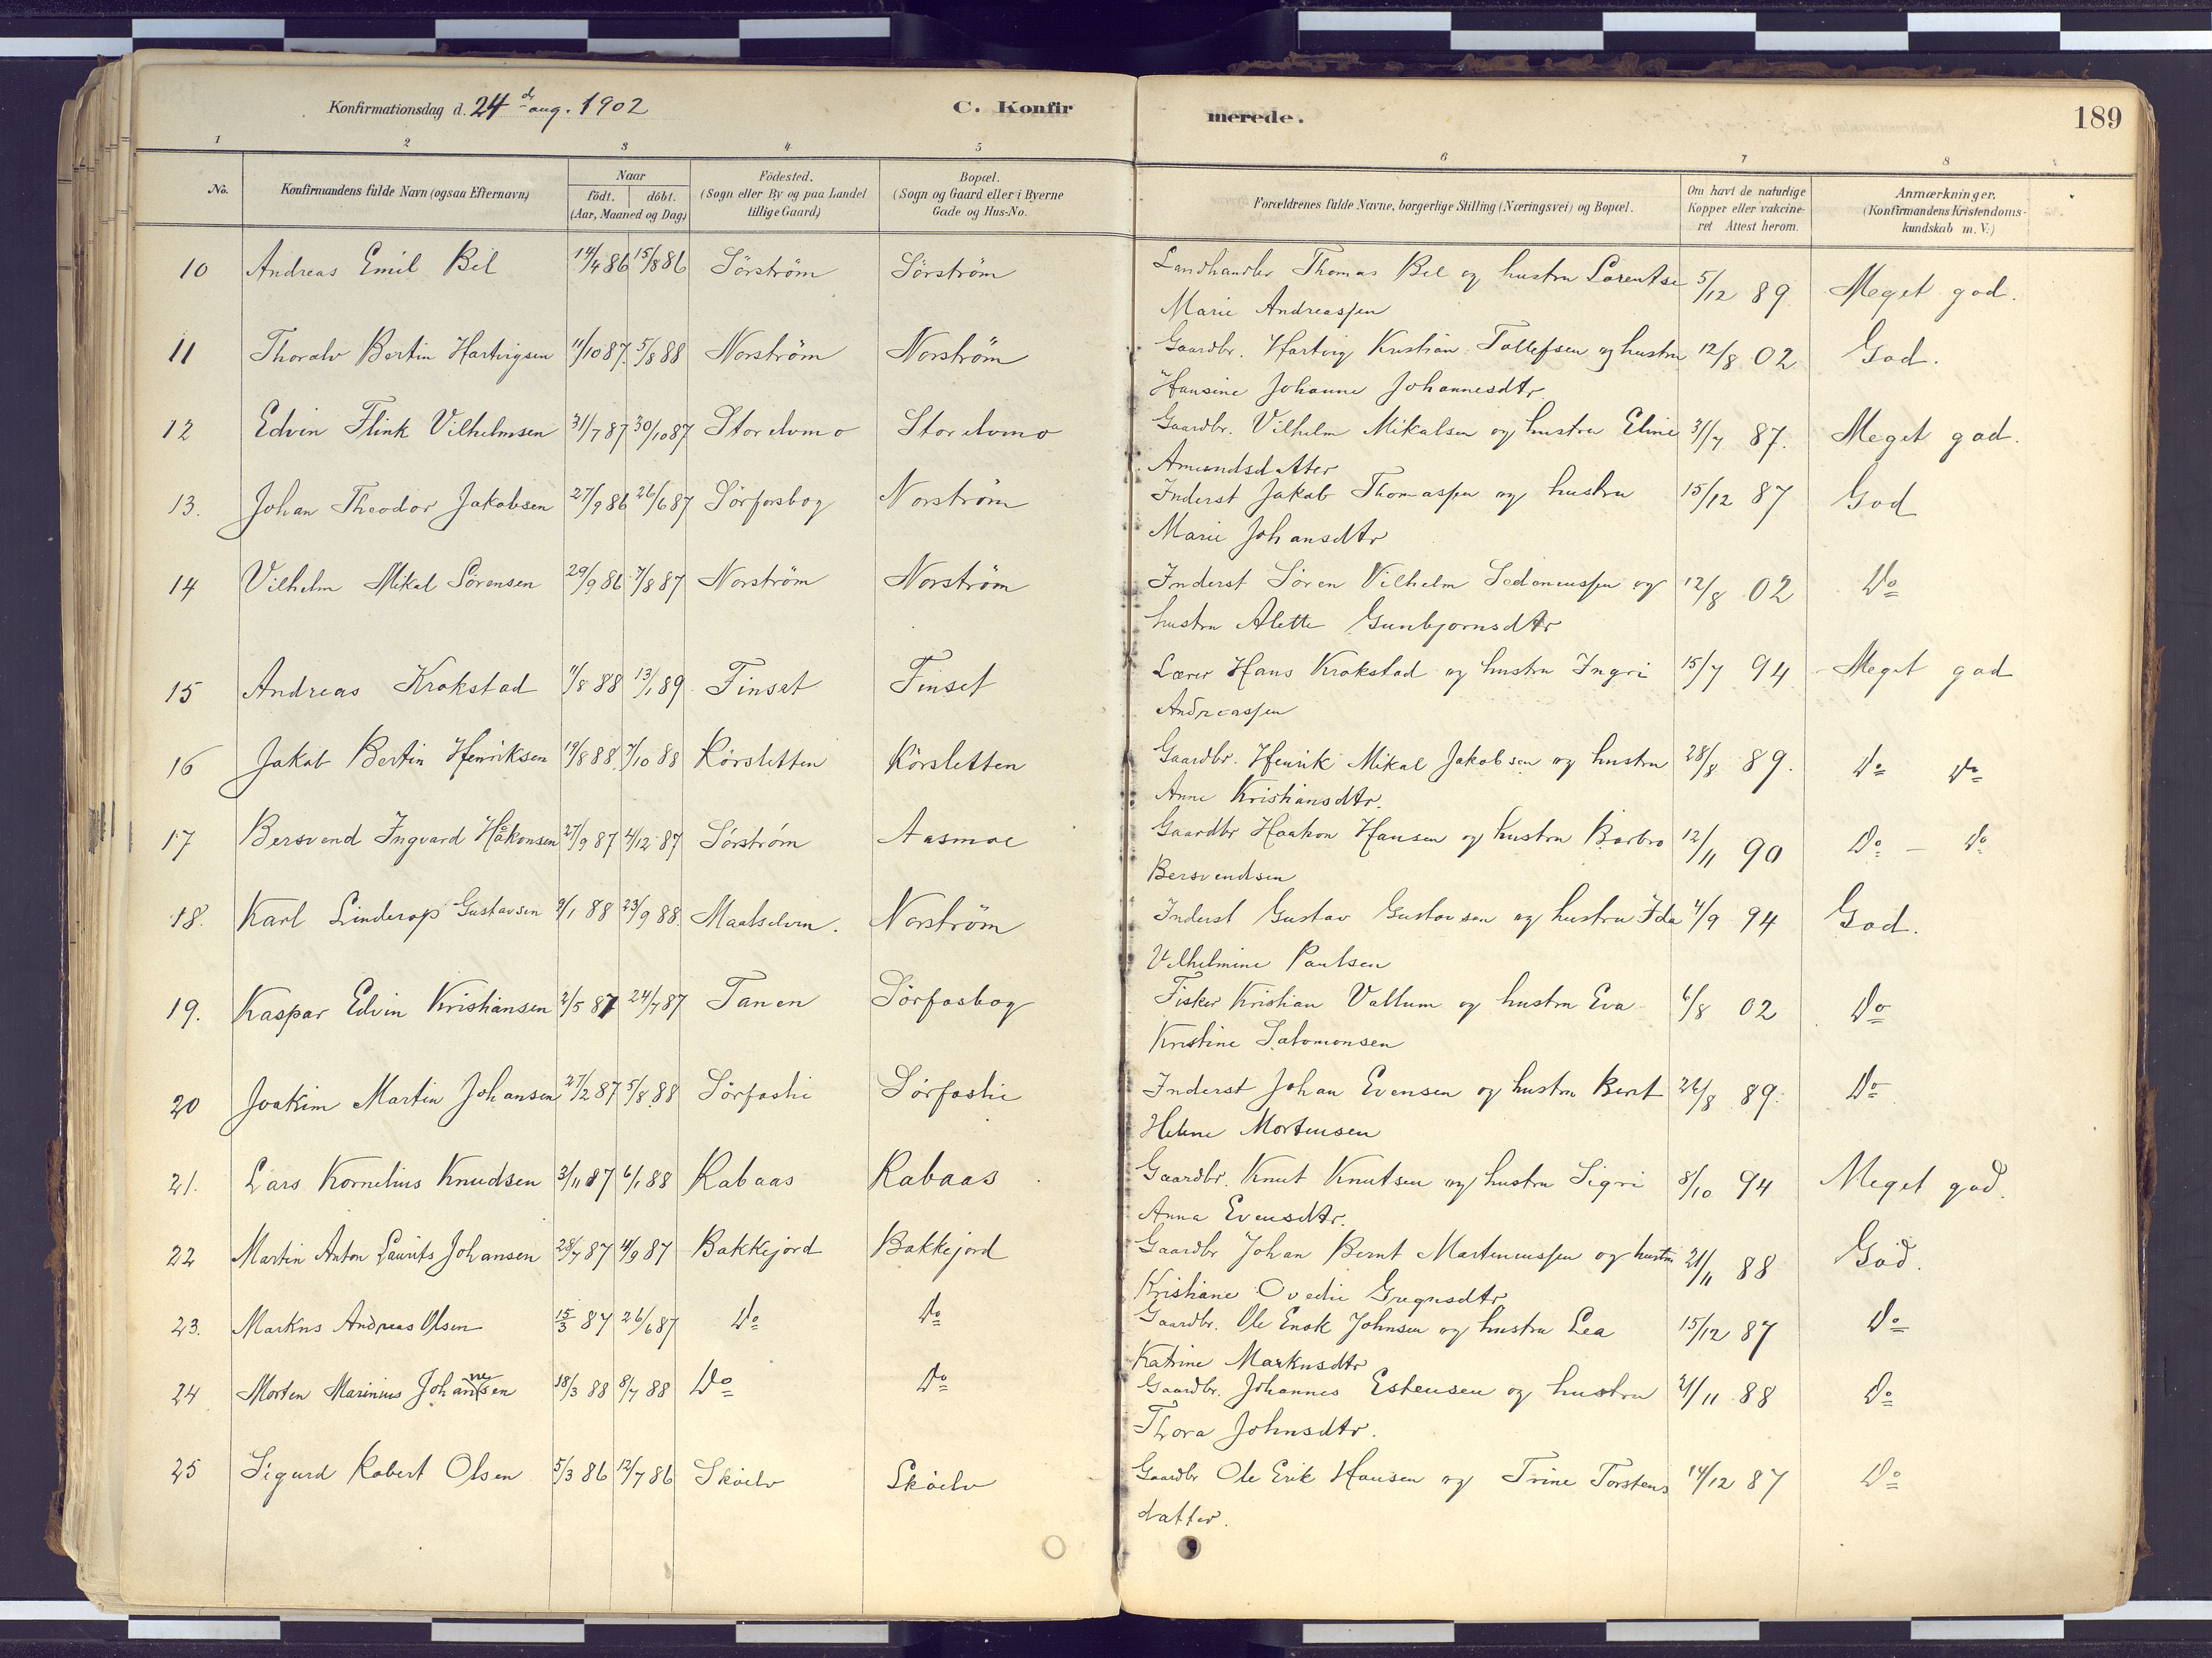 Konfirmationsdag d. 24de aug. 1902
C. Konfirmerede.
189
1 2 3 4 5 6 7 8
No.
Konfirmandens fulde Navn (ogsaa Efternavn)
Naar
födt. döbt.
(Aar, Maaned og Dag)
Födested.
(Sogn eller By og paa Landet
tillige Gaard)
Bopæl.
(Sogn og Gaard eller i Byerne
Gade og Hus-No.
Forældrenes fulde Navne, borgerlige Stilling (Næringsvei) og Bopæl.
Om havt de naturlige
Kopper eller vakcine-
ret Attest herom.
Anmærkninger.
(Konfirmandens Kristendoms-
kundskab m. V.)
10 Andreas Emil Bel 14/4 86 15/8 86 Sörström Sörström Landhandler Thomas Bel og hustru Lorentse 5/12 89 Meget god.
Marie Andreassen
11 Thoralv Bertin Hartvigsen 11/10 87. 5/8 88 Norström Norström Gaardbr. Hartvig Kristian Tollefsen og hustru 12/8 02 God.
Hansine Johanne Johannesdtr.
12 Edvin Flink Vilhelmsen 31/7 87 30/10 87 Storelvmo Storelvmo Gaardbr. Vilhelm Mikalsen og hustru Eline 31/7 87. Meget god.
Amundsdatter
13. Johan Theodor Jakobsen 27/9 86 26/6 87 Sörforsbog Norström Inderst Jakob Thomassen og hustru 15/12 87 God
Marie Johansdtr
14 Vilhelm Mikal Sörensen 29/9 86 7/8 87 Norström Norström Inderst Sören Vilhelm og 12/8 02 Do
hustru Alette Gunbjornsdtr
15 Andreas Krokstad 11/8 88 13/1 89 Finsæt Finset Lærer Hans Krokstad og hustru Ingri 15/7 94 Meget god
Andreassen
16 Jakob Bertin Henriksen 19/8 88. 7/10 88 Rörsletten Rörsletten Gaardbr. Henrik Mikal Jakobsen og hustru 28/8 89. Do Do
Anne Kristiansdtr.
17 Bersvend Ingvard Håkonsen 27/9 87 4/12 87 Sörström Aasmoe Gaardbr Haakon Hansen og hustru Barbro 12/11 90 Do — Do
Bersvendsen
18. Karl Linderop Gustavsen 9/1 88 23/9 88. Maalselven. Norström Inderst Gustav Gustavsen og hustru Ida 4/9 94 God.
Vilhelmine Paulsen
19. Kaspar Edvin Kristiansen 2/5 87 24/7 87 Tanen Sörfosbog Fisker Kristian Vallum og hustru Eva 6/8 02 Do
Kristine Salomonsen
20 Joakim Martin Johansen 27/2 87 5/8 88 Sörfosli Sörfosli Inderst Johan Evensen og hustru Berit 26/8 89. Do
Helene Mortensen
21. Lars Kornelius Knudsen 3/11 87 6/1 88 Rabaas Rabaas Gaardbr. Knut Knutsen og hustru Sigri 8/10 94 Meget god.
Anna Evensdtr.
22 Martin Anton Laurits Johansen 28/7 87 4/9 87 Bakkejord Bakkejord Gaardbr Johan Bernt Martinussen og hustru 21/11 88 God.
Kristiane Ovedie Gregusdtr
23. Markus Andreas Olsen 15/3 87 26/6 87 Do Do Gaardbr. Ole Enok Johnsen og hustru Lea 15/12 87 Do
Katrine Markusdtr
24 Morten Marinius Johannesen 18/3 88 8/7 88 Do Do Gaardbr. Johannes Estensen og hustru 21/11 88 Do
Thora Johnsdtr.
25 Sigurd Robert Olsen 5/3 86 12/7 86 Sköelv Sköelv Gaardbr Ole Erik Hansen og Trine Torstens 14/12 87 Do
datter.